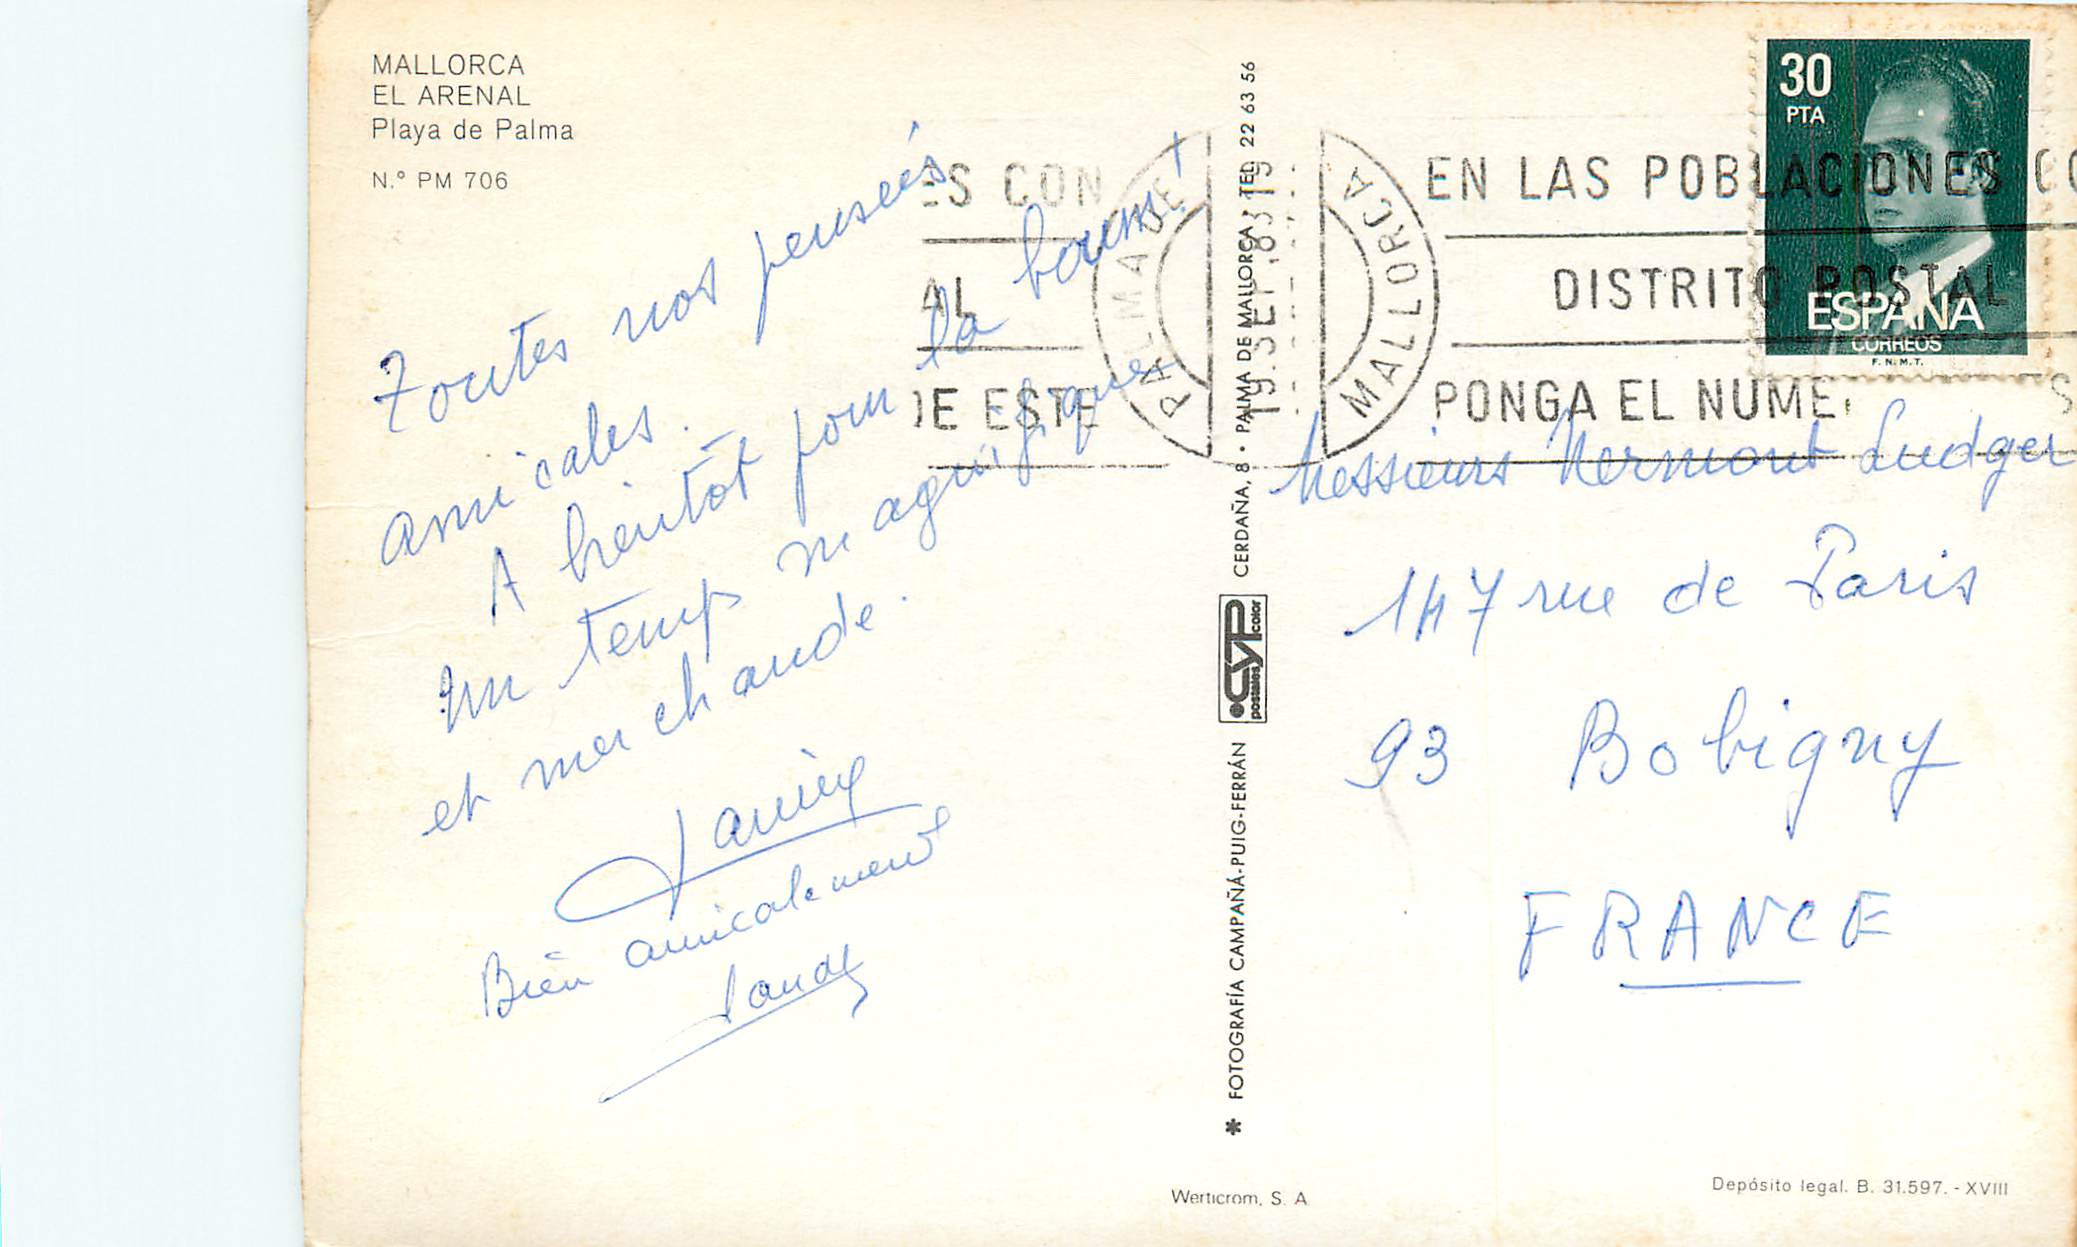 MALLORCA
EL ARENAL
Playa de Palma
N.º PM 706
Toutes nos pensées
amicales.
A bientôt pour la
un temps magnifique
et mer chaude.
Bien amicalement
Sandy
* FOTOGRAFÍA CAMPAÑÁ-PUIG-FERRÁN postales CYP color CERDAÑA, 8 · PALMA DE MALLORCA · TEL. 22 63 56
ES CON
AL
DE ESTE
PALMA DE MALLORCA
19.SEP.83 19
EN LAS POBLACIONES CO
DISTRITO POSTAL
PONGA EL NUME
30
PTA
ESPAÑA
CORREOS
F.N.M.T.
Messieurs Ludger
147 rue de Paris
93 Bobigny
FRANCE
Werticrom, S. A.
Depósito legal. B. 31.597. - XVIII